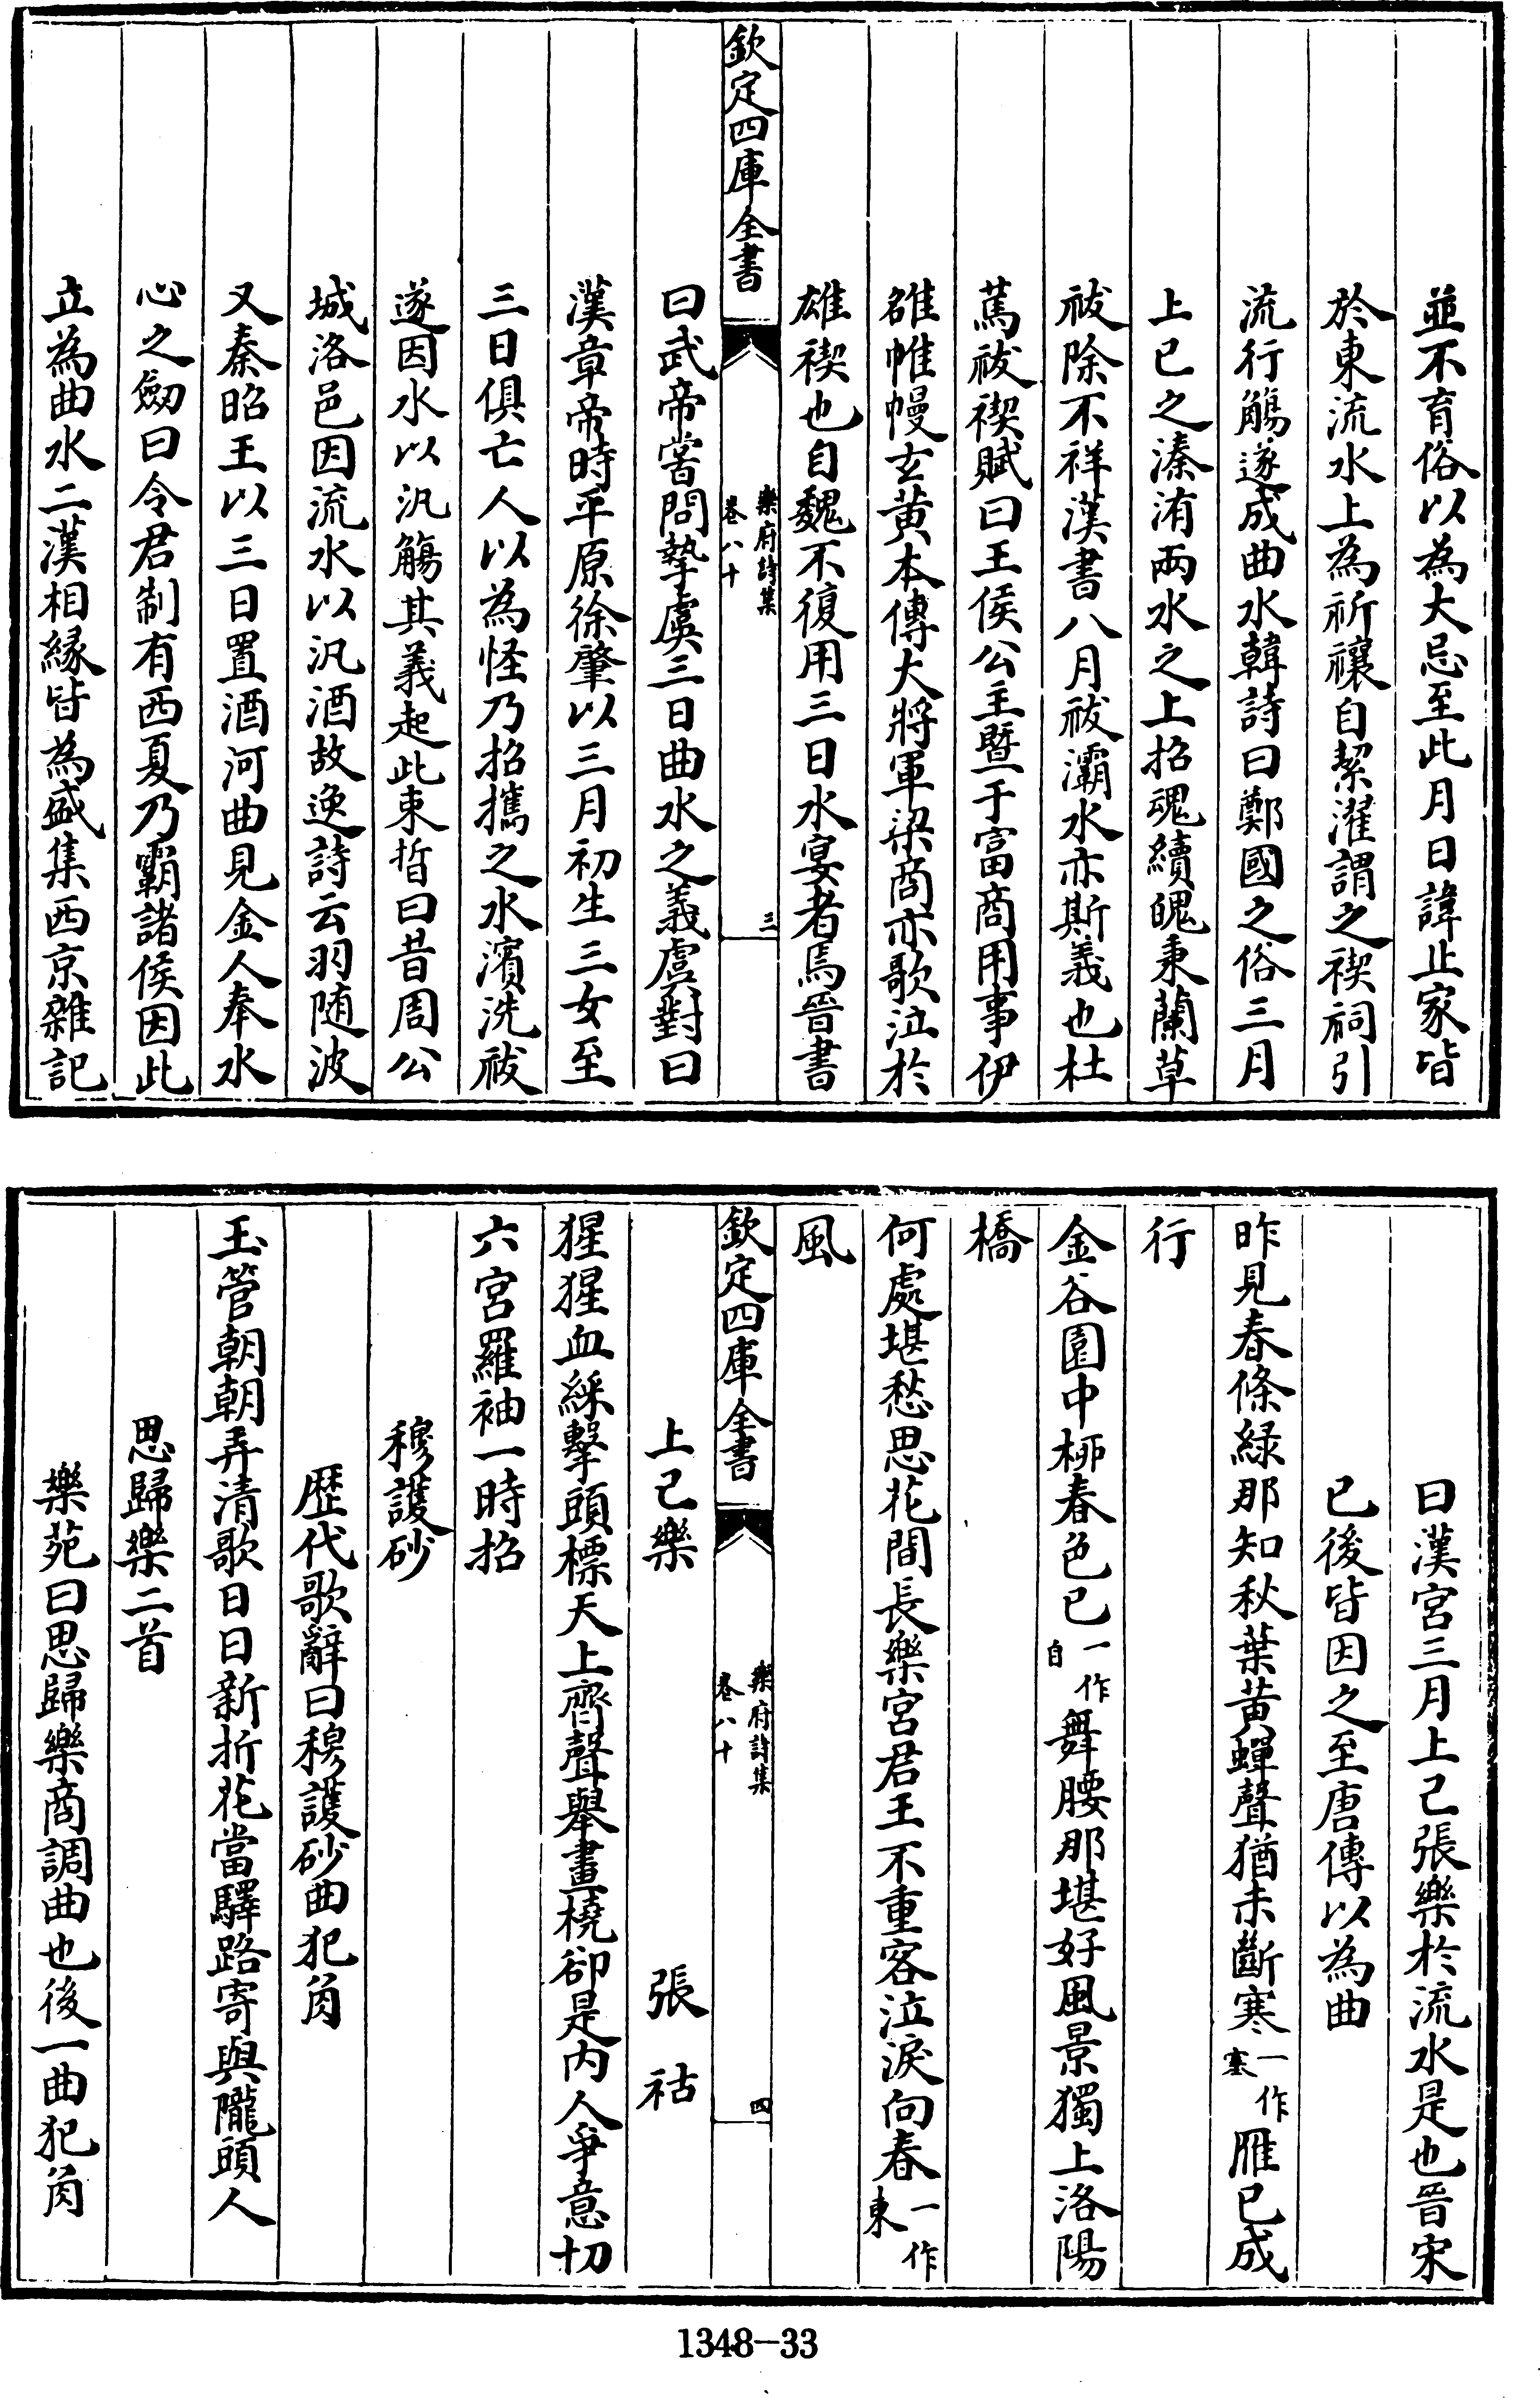 並不育俗以為大忌至此月日諱止家皆
於東流水上為祈禳自絜濯謂之禊祠引
流行觴遂成曲水韓詩曰鄭國之俗三月
上巳之溱洧兩水之上招魂續魄秉蘭草
祓除不祥漢書八月祓灞水亦斯義也杜
篤祓禊賦曰王侯公主暨于富商用事伊
雒帷幔玄黄本傳大將軍梁商亦歌泣於
雄禊也自魏不復用三日水宴者焉晉書
欽定四庫全書
樂府詩集
卷八十
三
曰武帝嘗問摯虞三日曲水之義虞對曰
漢章帝時平原徐肇以三月初生三女至
三日俱亡人以為怪乃招攜之水濱洗祓
遂因水以汎觴其義起此束晳曰昔周公
城洛邑因流水以汎酒故逸詩云羽随波
又秦昭王以三日置酒河曲見金人奉水
心之劒曰令君制有西夏乃霸諸侯因此
立為曲水二漢相縁皆為盛集西京雜記
曰漢宮三月上己張樂於流水是也晉宋
已後皆因之至唐傳以為曲
昨見春條緑那知秋葉黄蟬聲猶未斷寒一作塞雁已成
行
金谷園中栁春色已一作自舞腰那堪好風景獨上洛陽
橋
何處堪愁思花間長樂宮君王不重客泣淚向春一作東
風
欽定四庫全書
樂府詩集
卷八十
四
上己樂 張祜
猩猩血綵擊頭標天上齊聲舉畫橈卻是内人爭意切
六宮羅袖一時招
穆護砂
歴代歌辭曰穆護砂曲犯角
玉管朝朝弄清歌日日新折花當驛路寄與隴頭人
思歸樂二首
樂苑曰思歸樂商調曲也後一曲犯角
1348-33